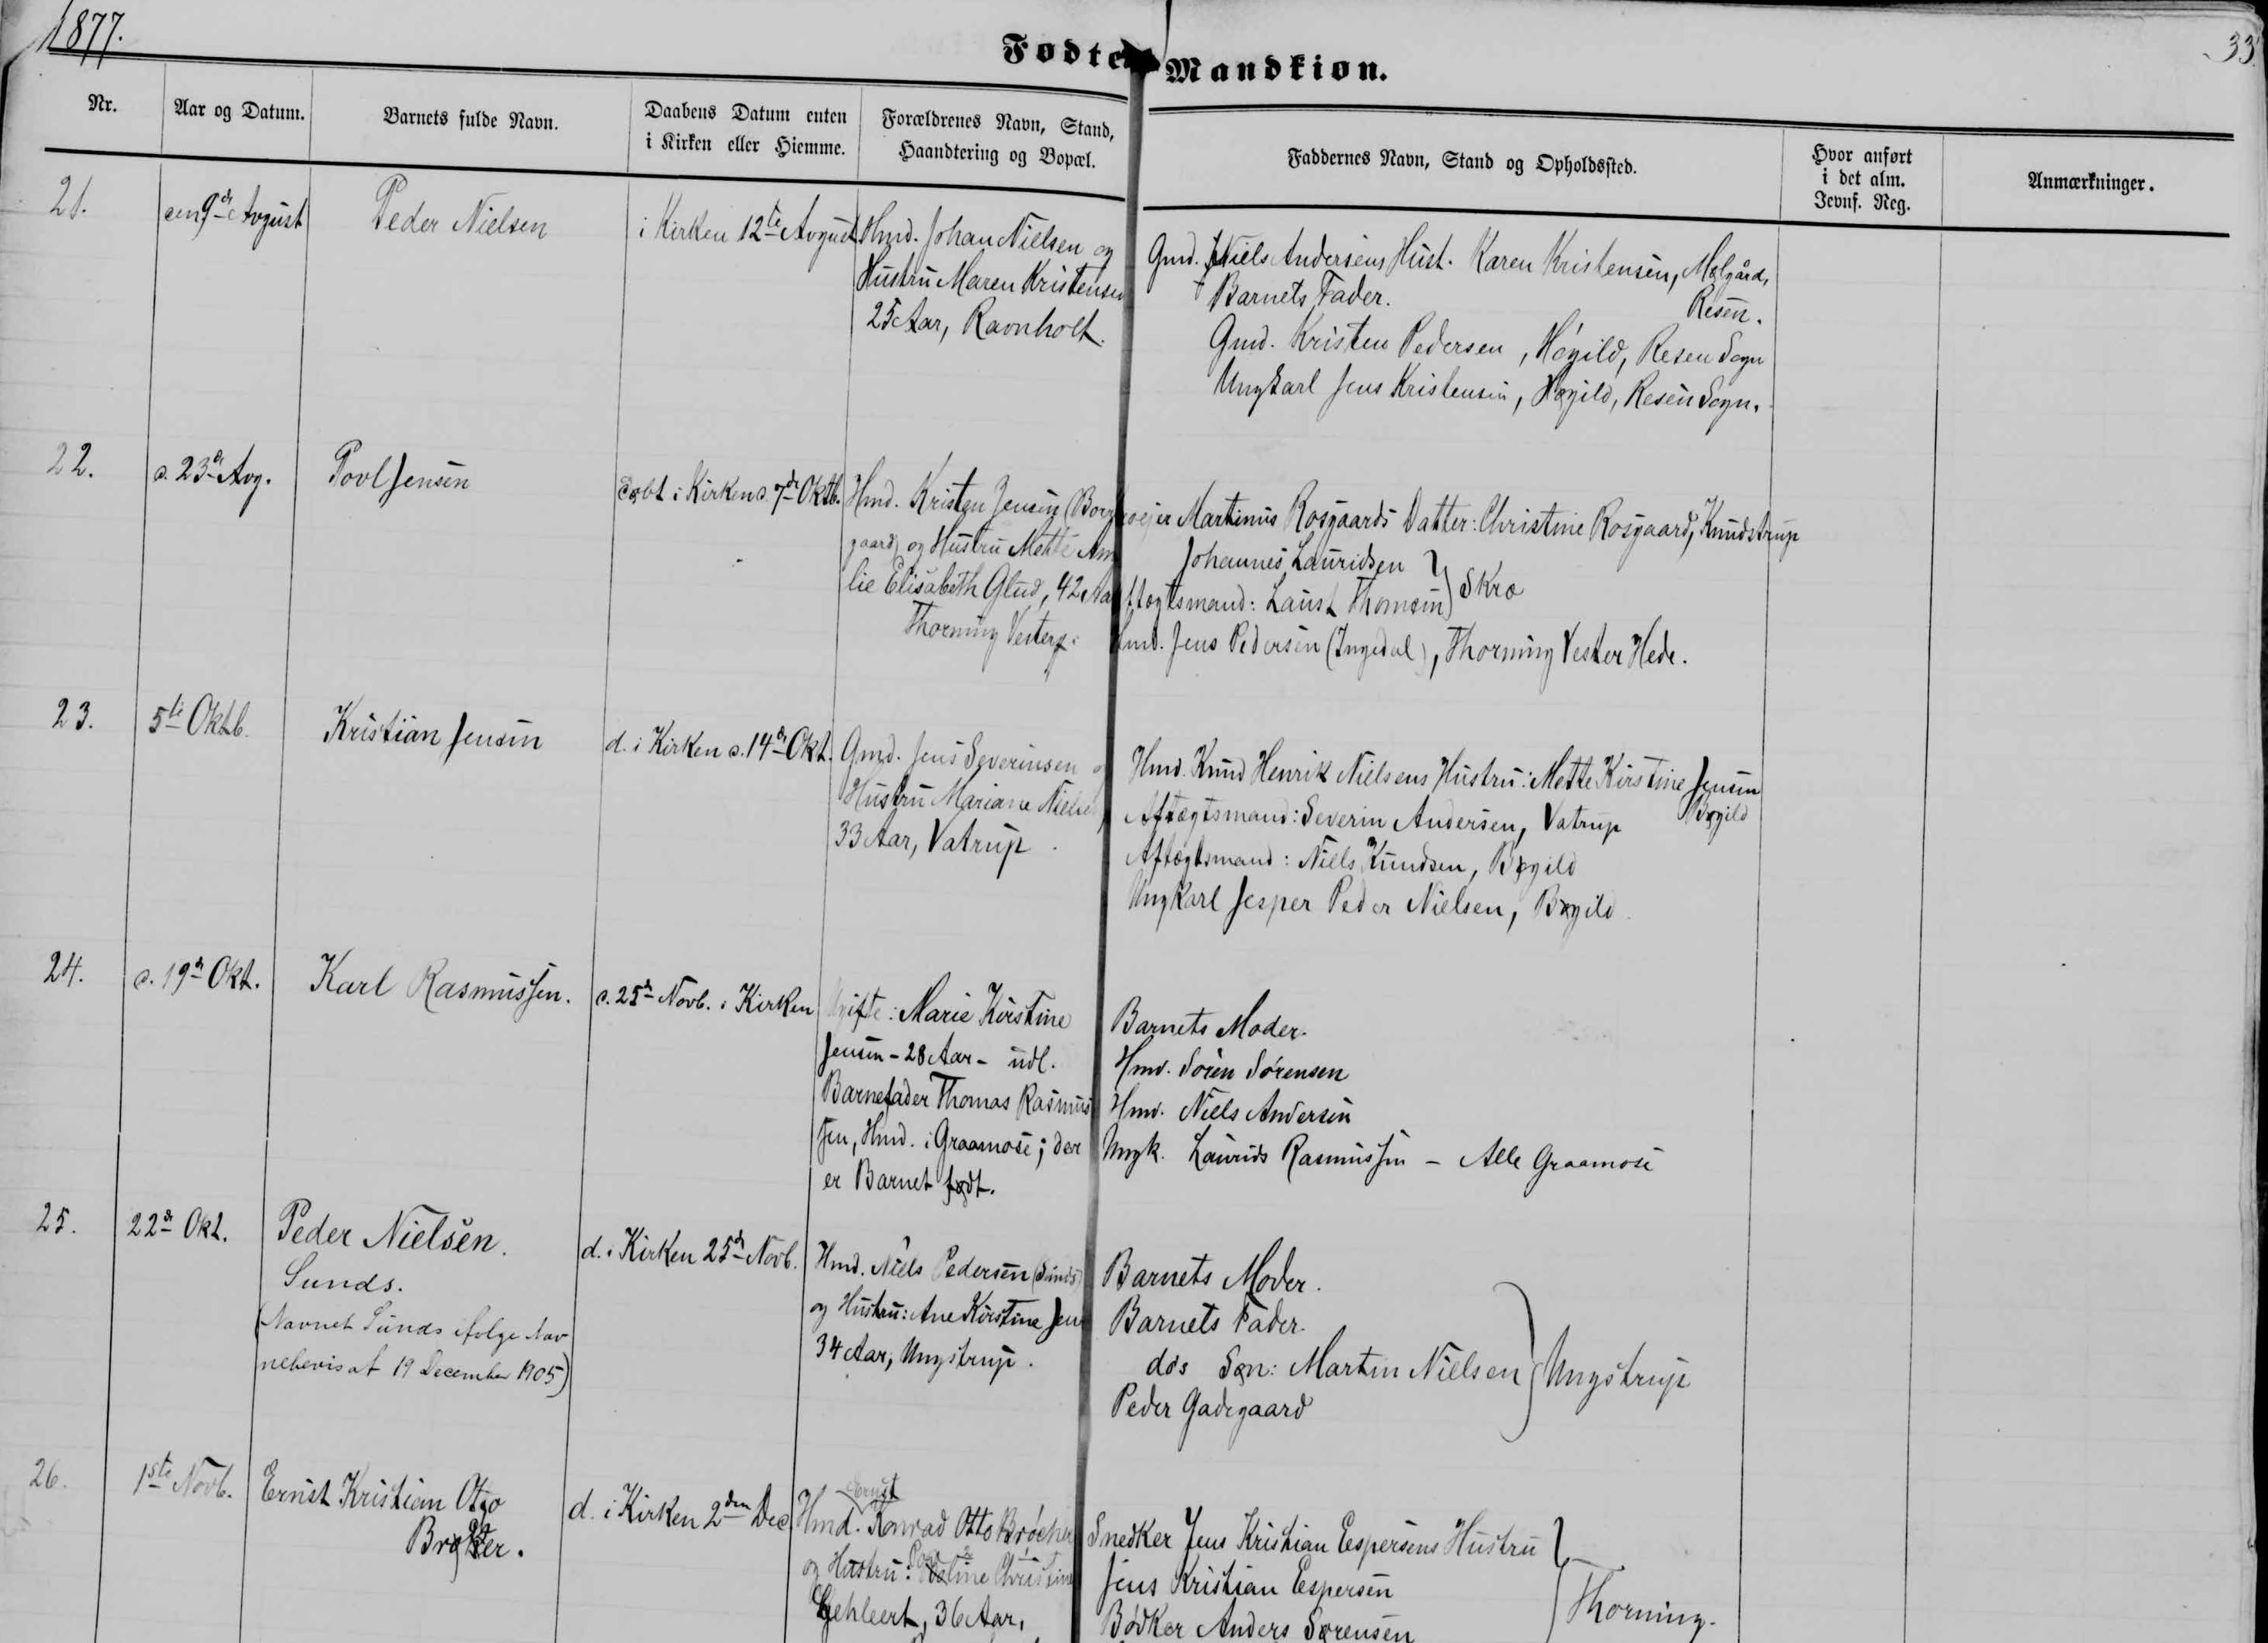 1877.
33.
Fødte Mandkiøn.
Nr.
Aar og Datum.
Barnets fulde Navn.
Daabens Datum enten
i Kirken eller Hiemme.
Forældrenes Navn, Stand,
Haandtering og Bopæl.
Faddernes Navn, Stand og Opholdssted.
Hvor anført
i det alm.
Jevnf. Reg.
Anmærkninger.
21.
den 9de Avgust
Peder Nielsen
i Kirken 12te Avgust
Hmd. Johan Nielsen og
Hustru Maren Kristensen
25 Aar, Ravnholt.
Gmd. Niels Andersens Hust. Karen Kristensen, Mølgård,
Resen.
Barnets Fader.
Gmd. Kristen Pedersen, Høgild, Resen Sogn
Ungkarl Jens Kristensen, Høgild, Resen Sogn.
22.
d. 23de Avg.
Povl Jensen
døbt i Kirken d. 7de Oktb.
Hmd. Kristen Jensen (Borg
gaard) og Hustru Mette Am
lie Elisabeth Glud, 42 Aar
Thorning Vesterh.
Martinus Rosgaards Datter: Christine Rosgaard, Knudstrup
Johannes Lauridsen
Aftægtsmand: Laust Thomsen } Skræ
Hmd. Jens Pedersen (Ingedal), Thorning Vester Hede.
23.
5te Oktb.
Kristian Jensen
d. i Kirken d. 14de Okt.
Gmd. Jens Severinsen og
Hustru Mariane Nielsen
33 Aar, Vatrup.
Hmd. Knud Henrik Nielsens Hustru: Mette Kirstine Jensen
Bøgild
Aftægtsmand: Severin Andersen, Vatrup
Aftægtsmand: Niels Knudsen, Bøgild
Ungkarl Jesper Peder Nielsen, Bøgild.
24.
d. 19de Okt.
Karl Rasmussen.
d. 25de Novb. i Kirken
Ugifte: Marie Kirstine
Jensen - 28 Aar - udl.
Barnefader Thomas Rasmus
sen, Hmd. i Graamose; der
er Barnet født.
Barnets Moder.
Hmd. Søren Sørensen
Hmd. Niels Andersen
Ungk. Laurids Rasmussen - Alle Graamose
25.
22de Okt.
Peder Nielsen.
Sunds.
(Navnet Sunds ifølge Nav
nebevis af 19 December 1905)
d. i Kirken 25de Novb.
Hmd. Niels Pedersen (Sunds)
og Hustru: Ane Kirstine Jen
34 Aar, Ungstrup.
Barnets Moder.
Barnets Fader.
d's Søn: Martin Nielsen } Ungstrup
Peder Gadegaard
26.
1ste Novb.
Ernst Kristian Otto
Brøker.
d. i Kirken 2den Dec.
Ernst
Hmd. Konrad Otto Brøcher
og Hustru: Christine
Gehleert, 36 Aar,
Snedker Jens Kristian Espersens Hustru
Jens Kristian Espersen
Bødker Anders Sørensen
} Thorning.